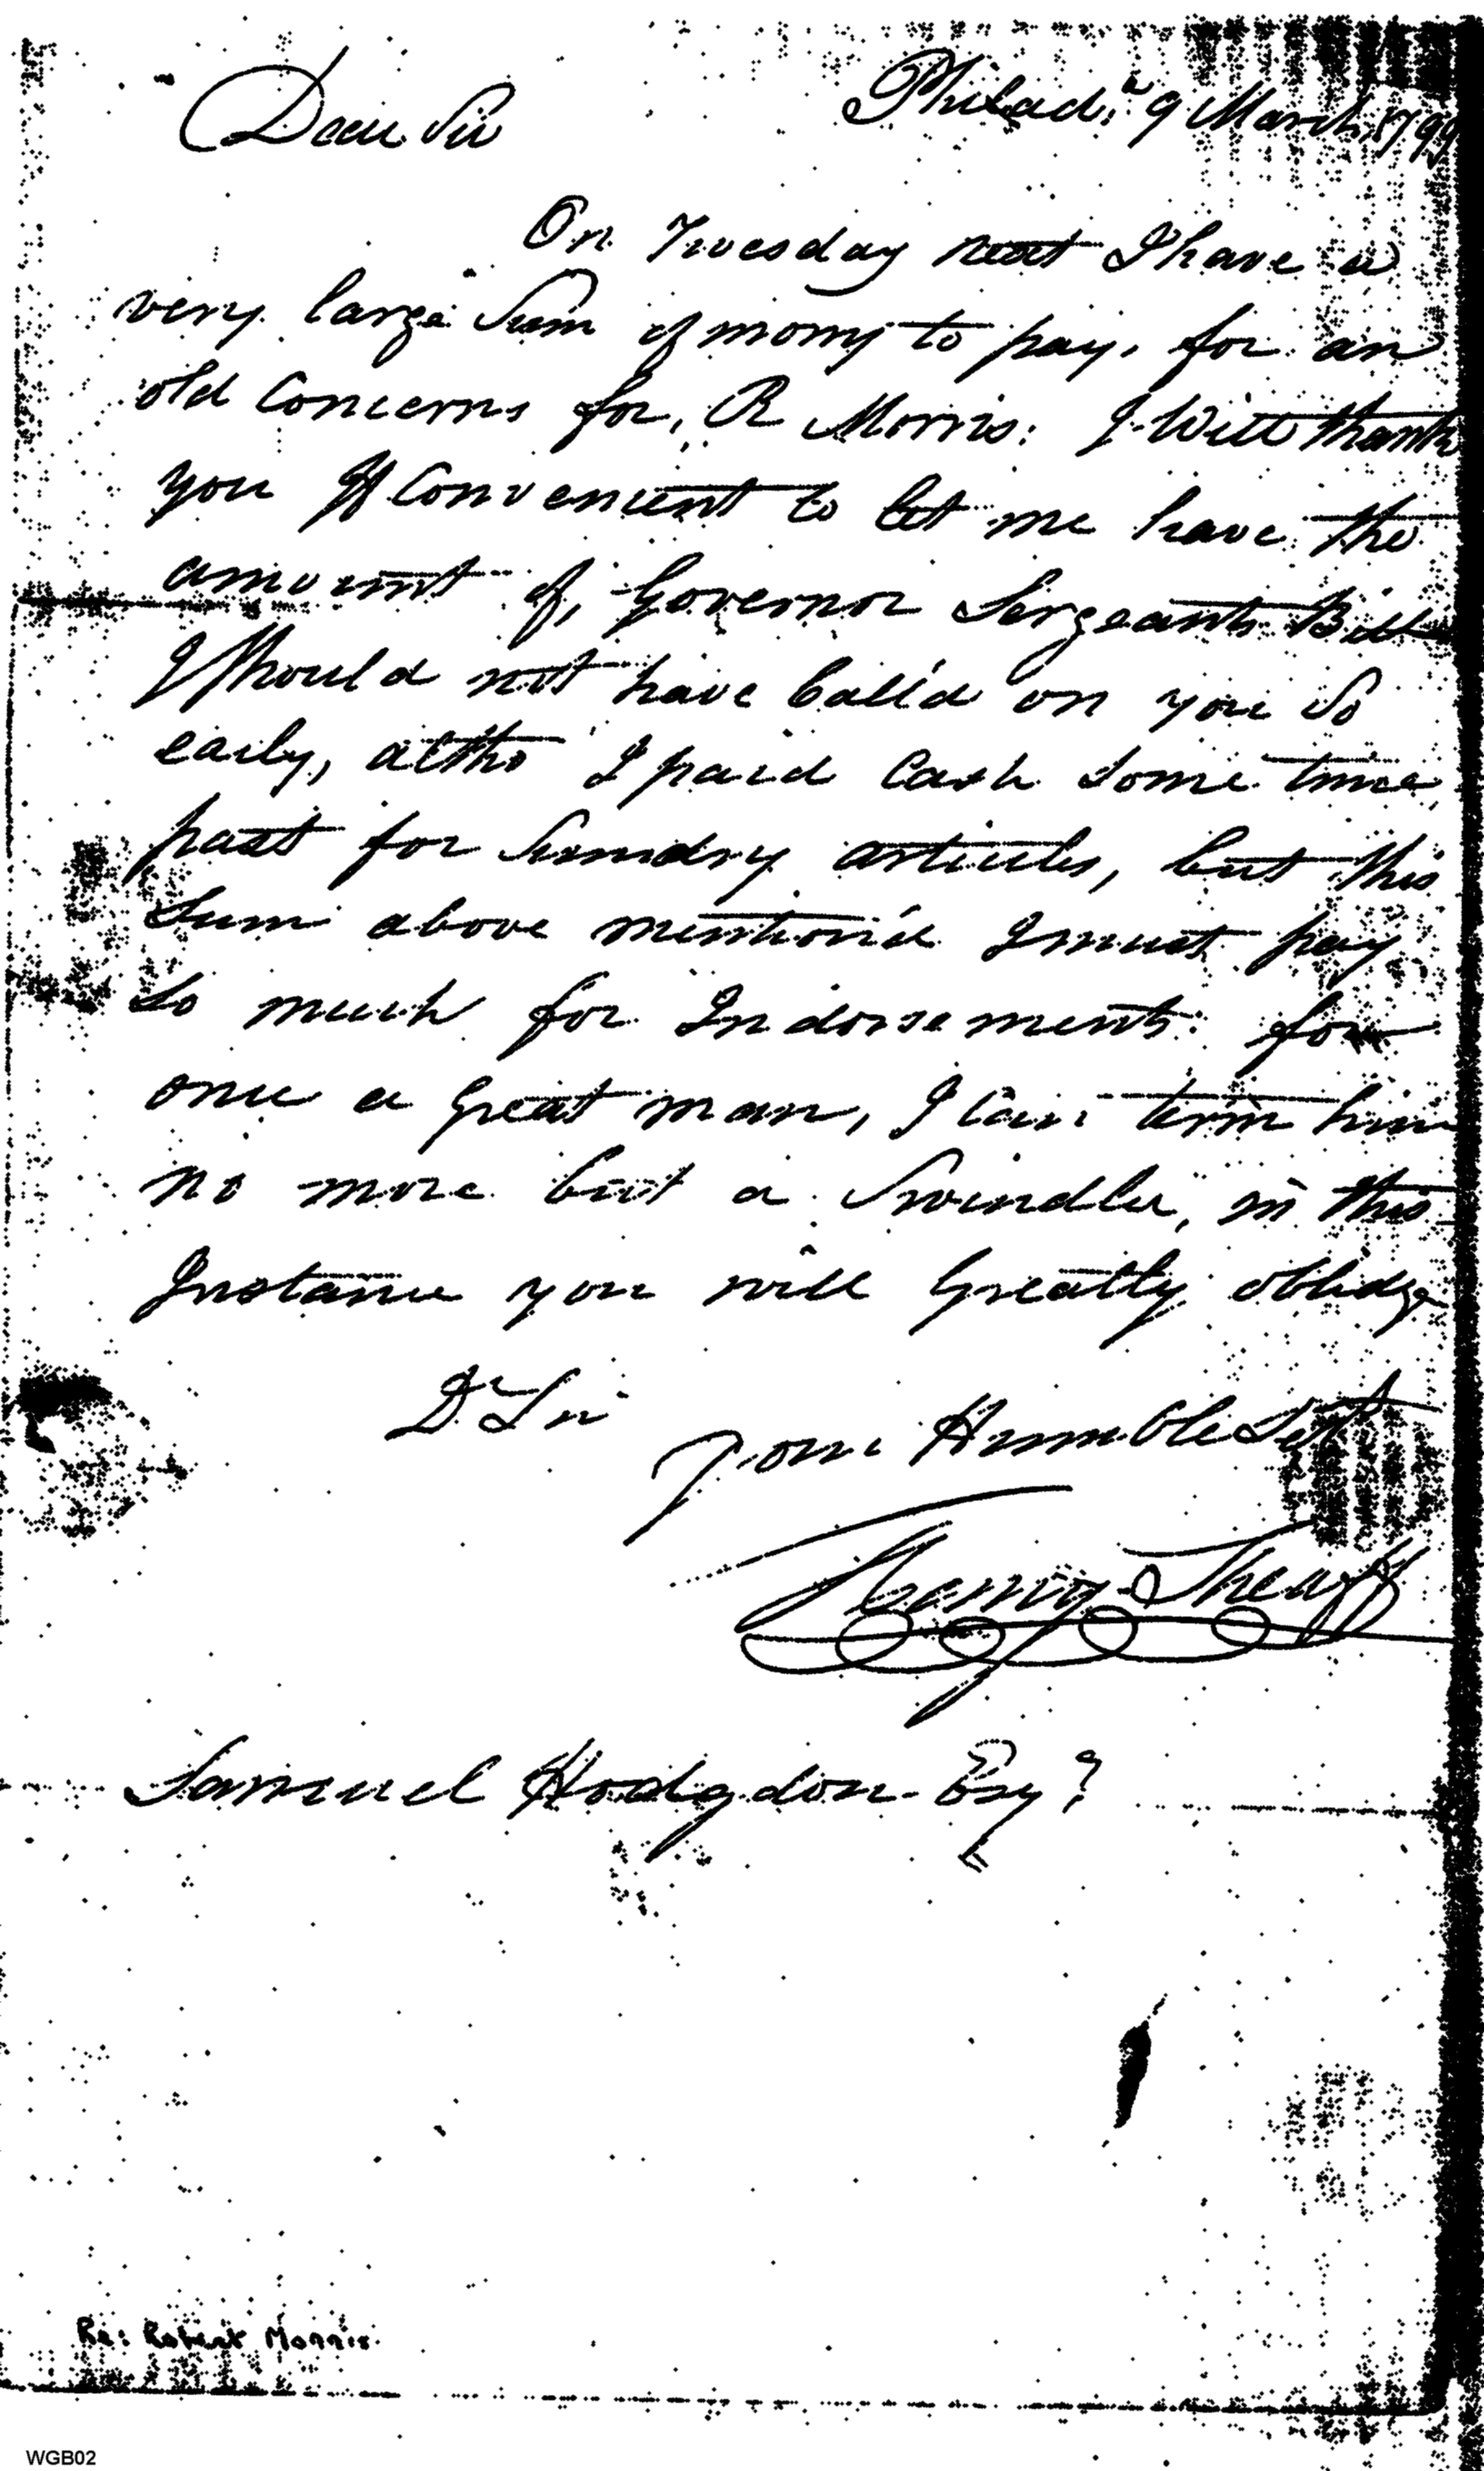 Dear Sir
Philad.a 9 March 1799
On Tuesday next I have a
very large Sum of mony to pay, for an
old Concerns for, R Morris: I Will thank
you If Convenient to let me have the
amount of, Governor Sergeants Bill
I Should not have Call'd on you So
early, altho I paid Cash Some time
past for Sundry articles, but this
Sum above mention'd I must pay
So much for Indorsements: for
once a great man, I Can term him
no more but a Swindler, in this
Instance you will Greatly oblidge
Dr Sir
Your Humble Sert
Henry Sheaff
Samuel Hodgdon Esqr
Re: Robert Morris
WGB02